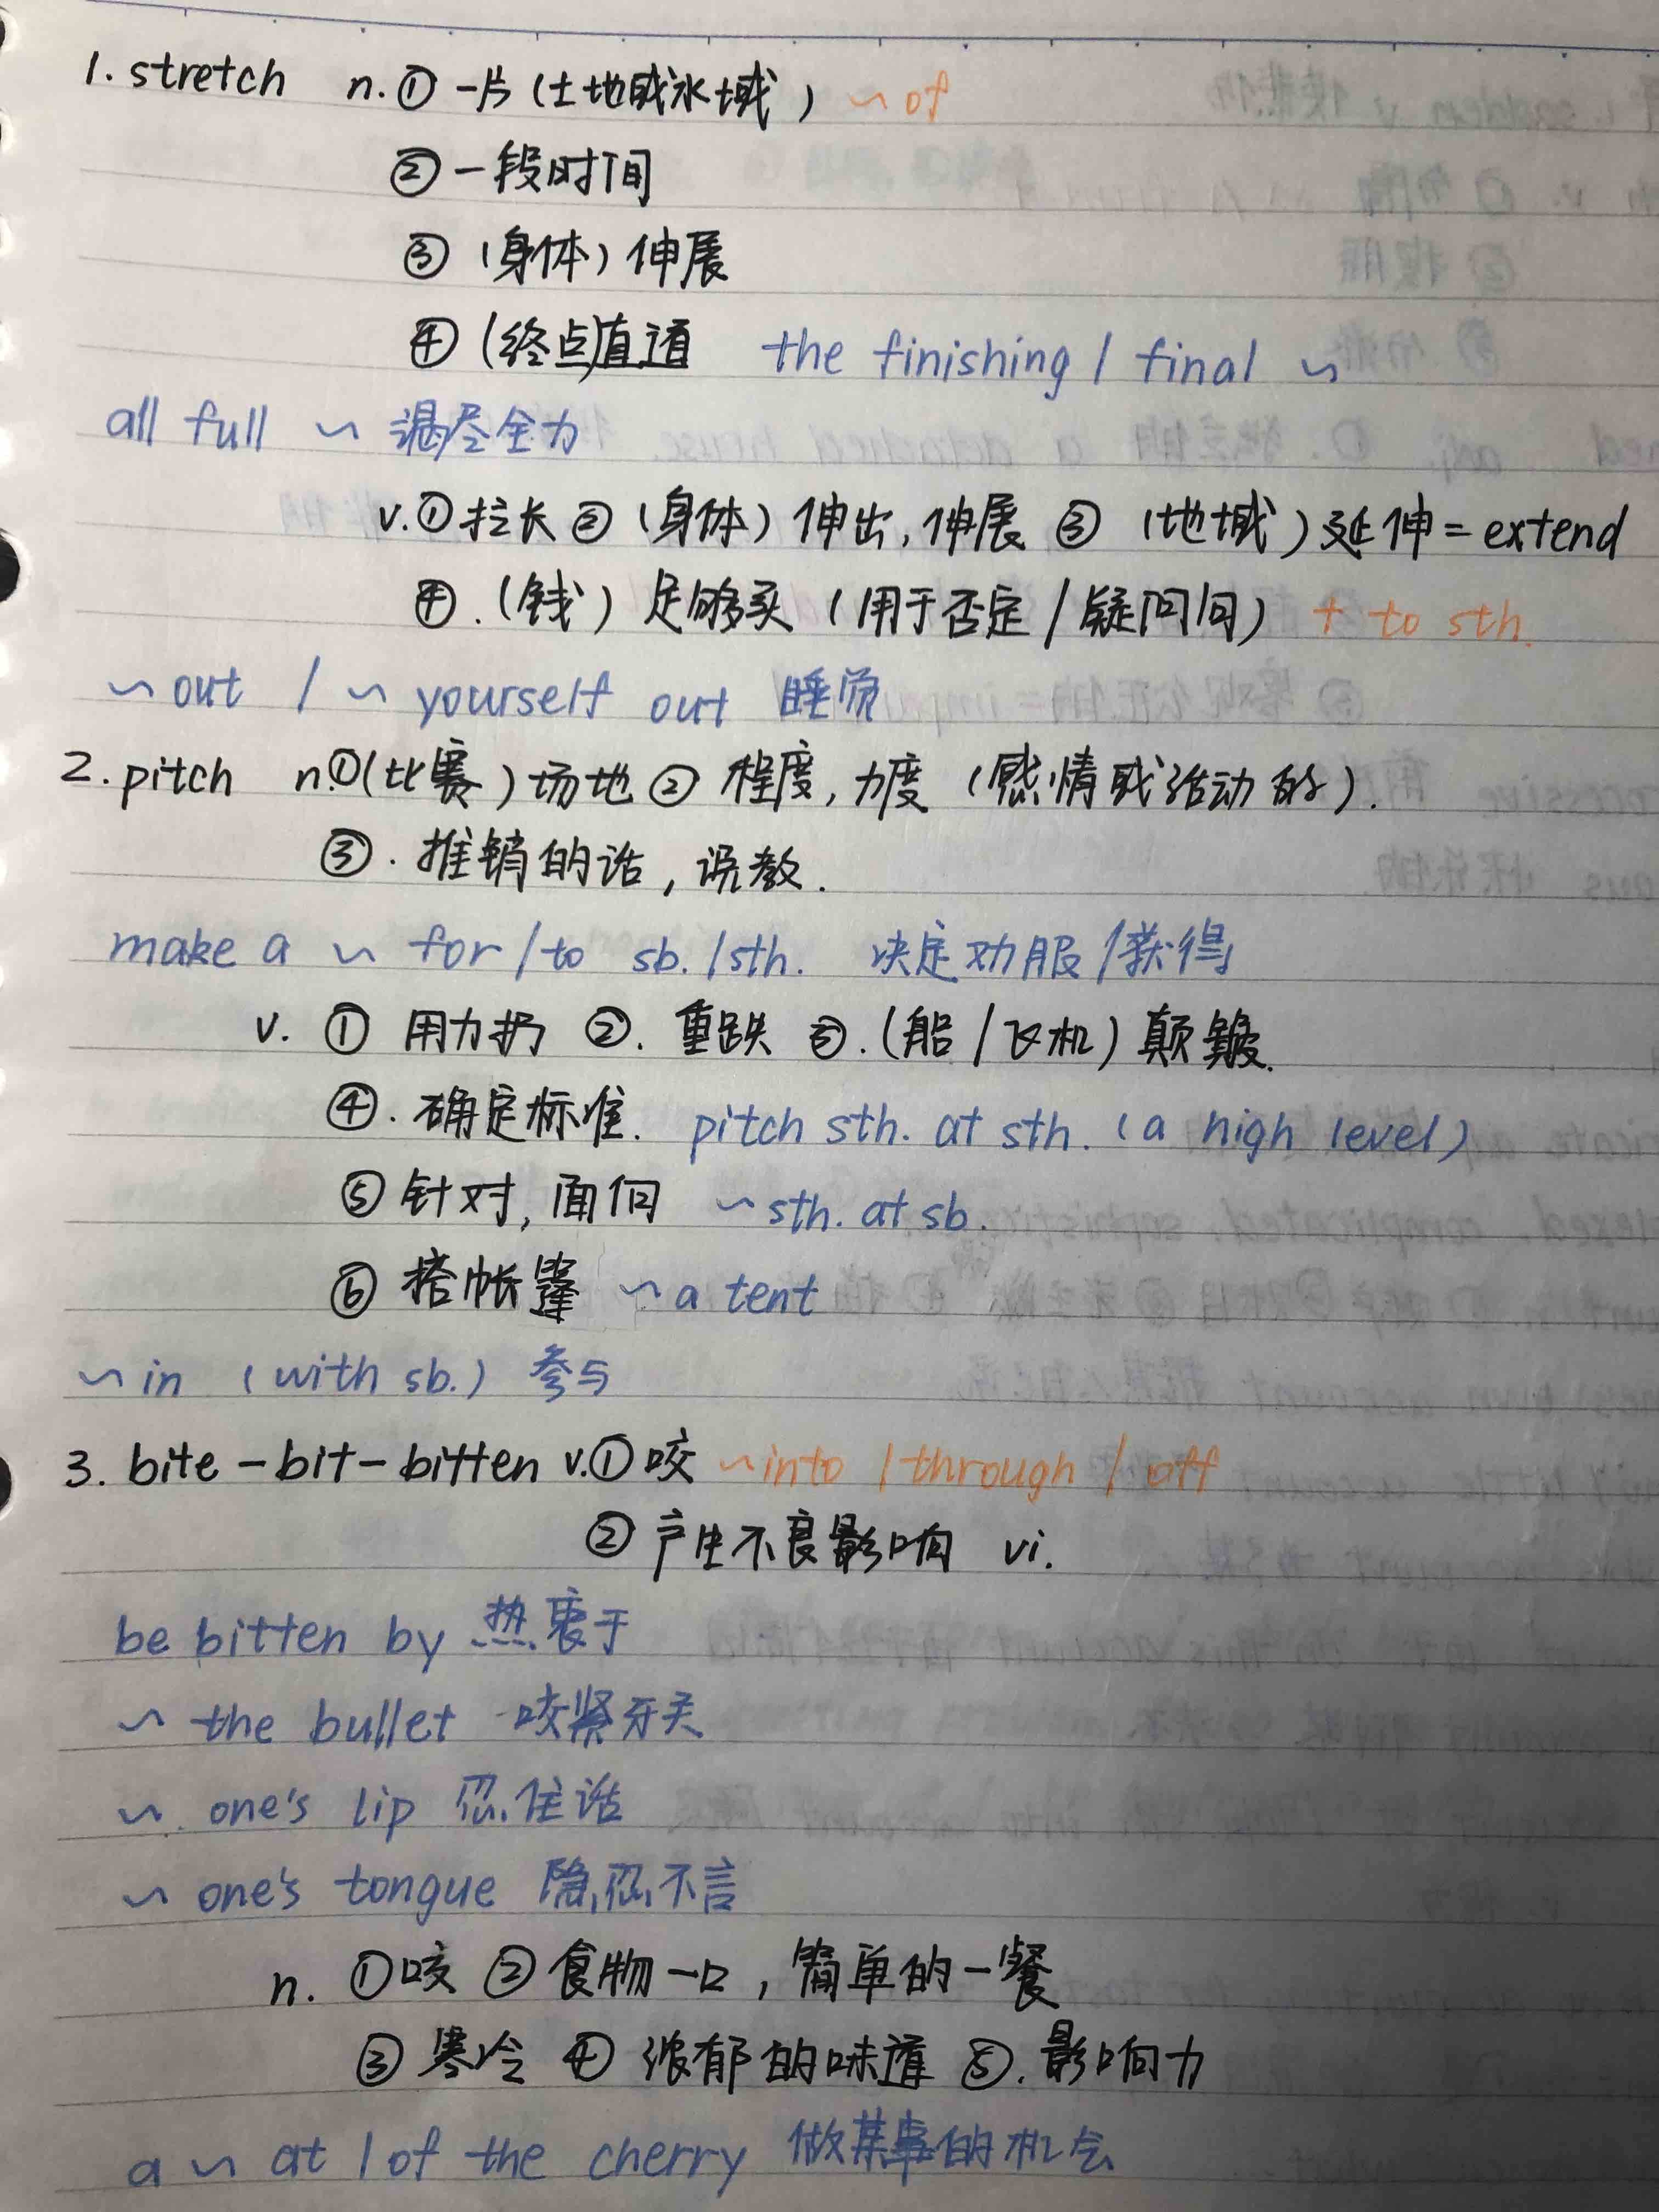 1. stretch n. ① 一片（土地或水域） ~ of
② 一段时间
③（身体）伸展
④（终点）直道 the finishing / final ~
all full ~ 竭尽全力
v. ① 拉长 ②（身体）伸出，伸展 ③（地域）延伸 = extend
④.（钱）足够买（用于否定/疑问问） + to sth.
~ out / ~ yourself out 睡觉
2. pitch n.①(比赛）场地 ② 程度，力度（感情或活动的）.
③. 推销的话，说教.
make a ~ for / to sb. / sth. 决定劝服/获得
v. ① 用力扔 ②. 重跌 ③.（船/飞机）颠簸.
④. 确定标准. pitch sth. at sth. (a high level)
⑤ 针对，面向 ~ sth. at sb.
⑥ 搭帐篷 ~ a tent
~ in (with sb.) 参与
3. bite - bit - bitten v.① 咬 ~ into / through / off
② 产生不良影响 vi.
be bitten by 热衷于
~ the bullet 咬紧牙关
~. one's lip 忍住话
~ one's tongue 隐忍不言
n. ① 咬 ② 食物一口，简单的一餐
③ 寒冷 ④ 浓郁的味道 ⑤. 影响力
a ~ at / of the cherry 做某事的机会